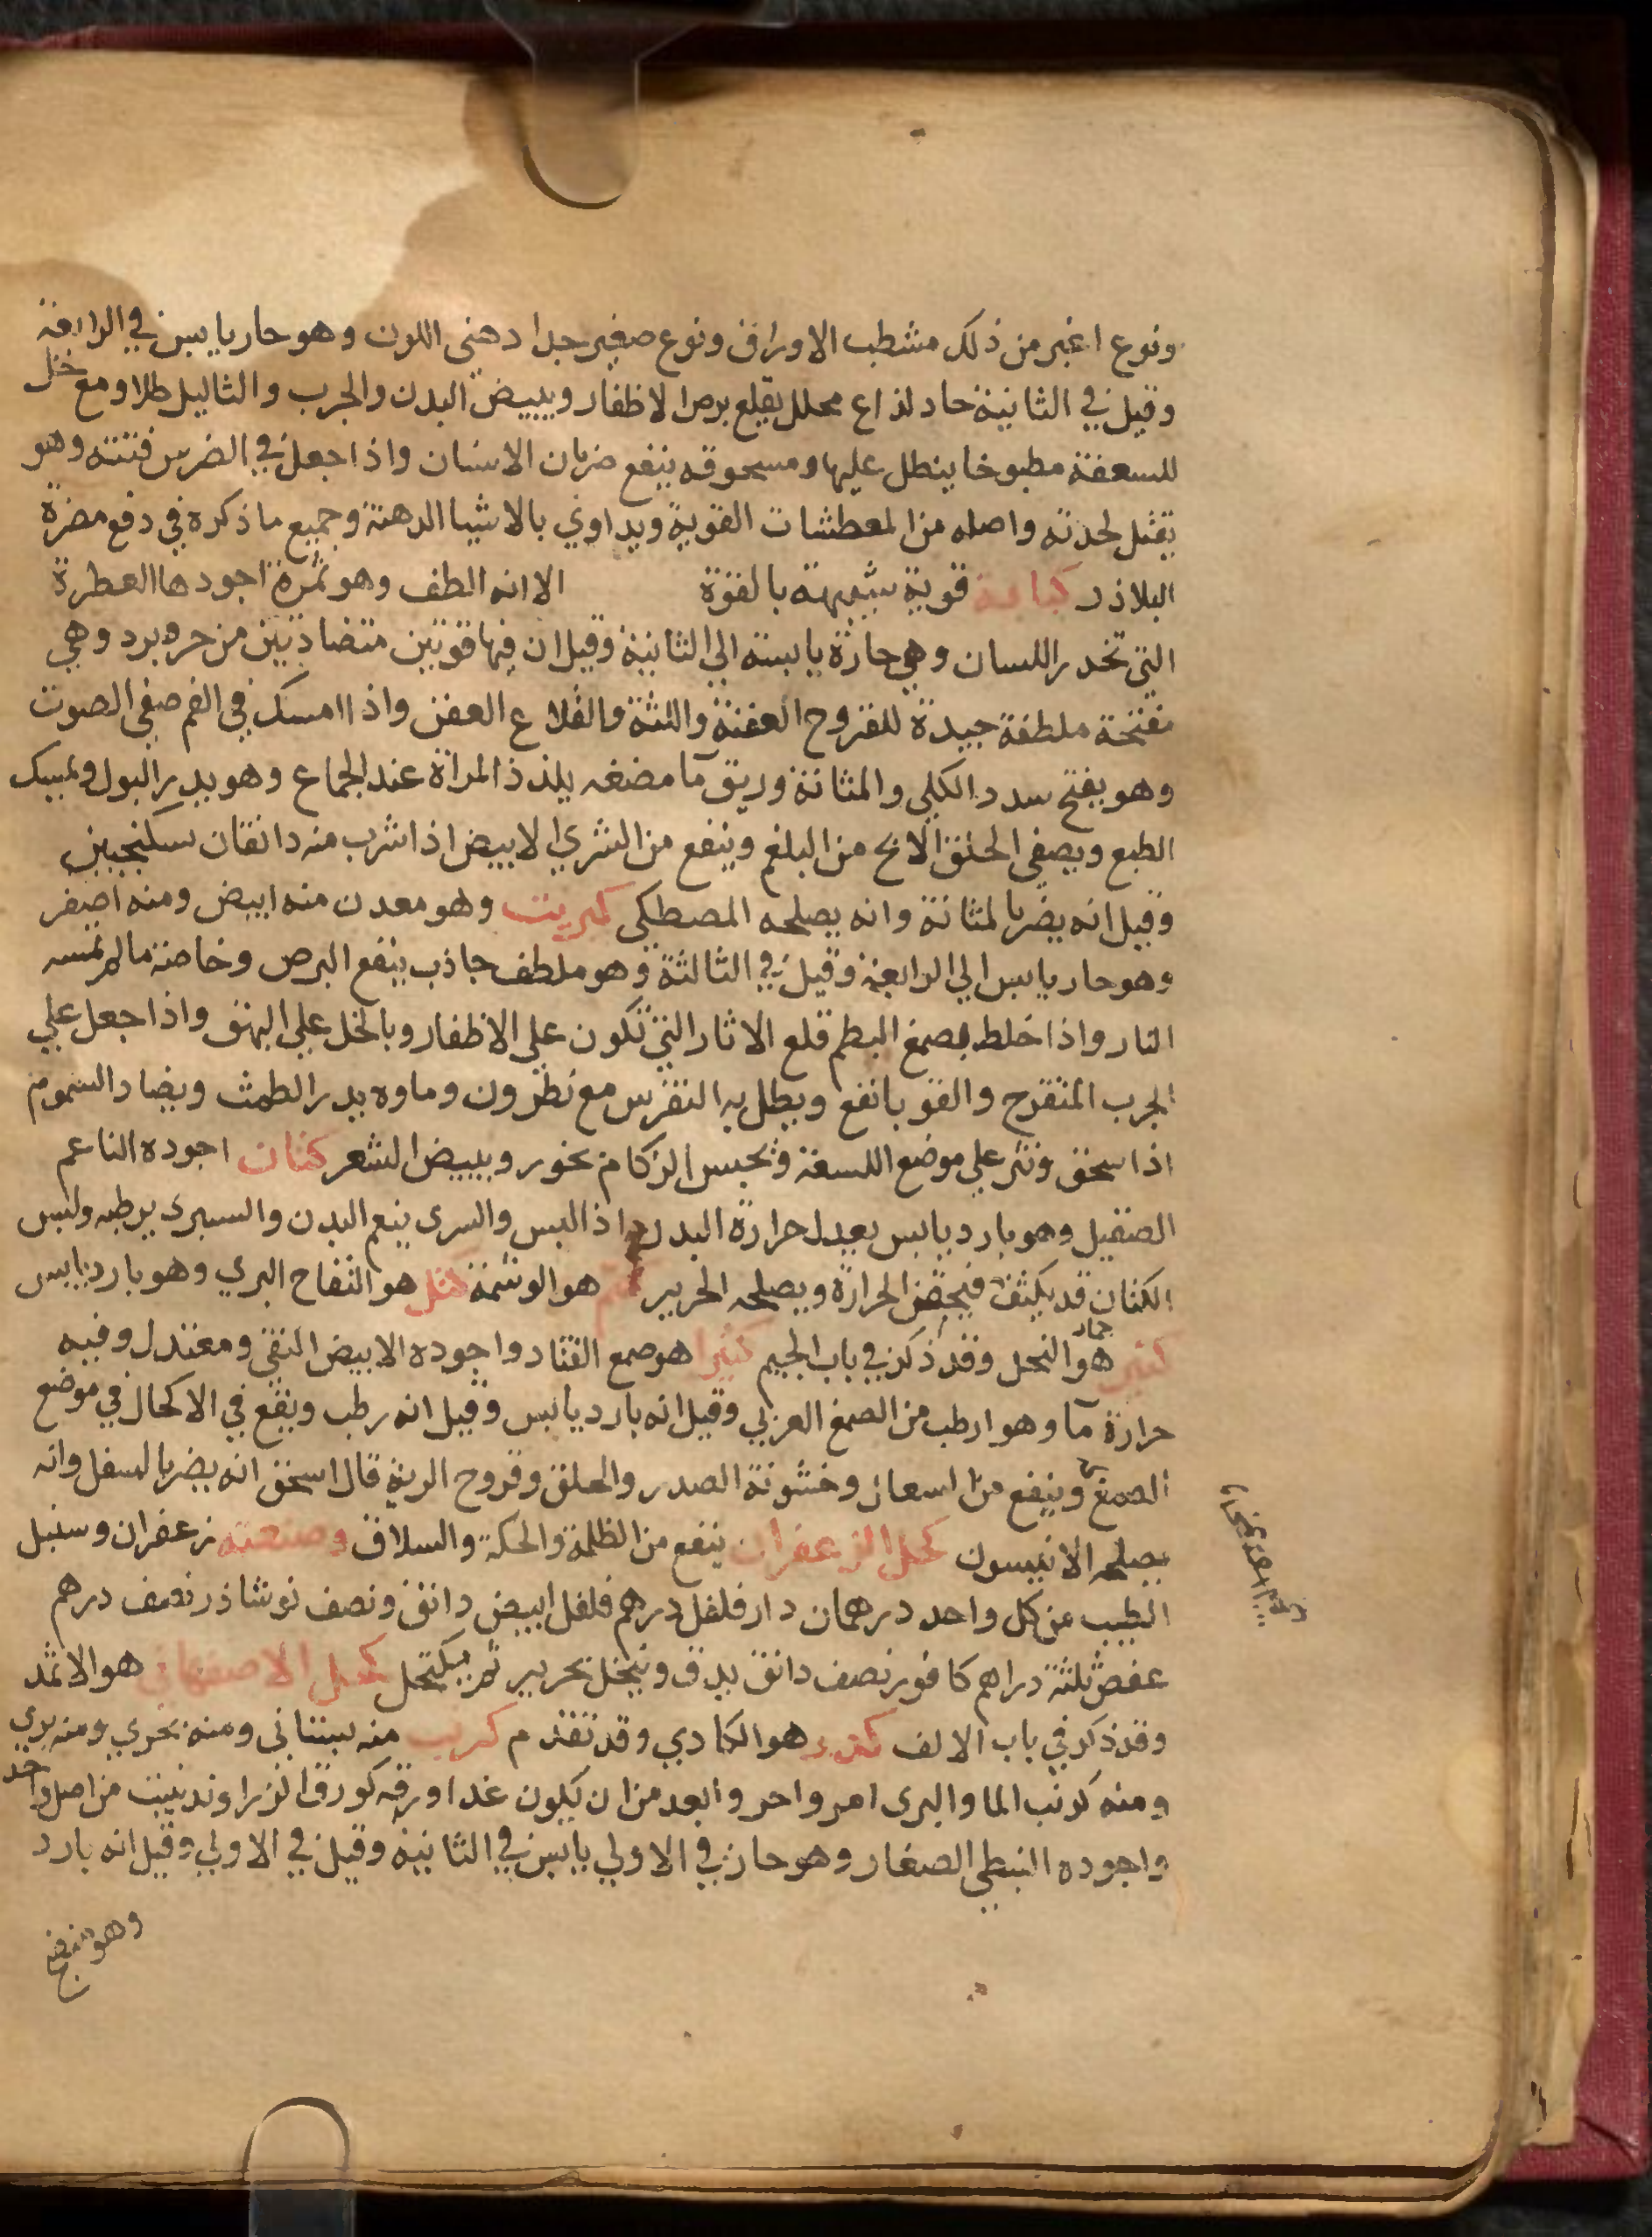 ونوع اغبر من ذلك مشطب الاوراق ونوع صغير جدا دهني اللون وهو حار يابس في الرابعة
وقيل في الثانية حاد لذاع محلل يقلع برص الاظفار ويبيض البدن والجرب والثاليل طلا ومع خل
للسعفة مطبوخا ينطل عليها ومسحوقه ينفع ضربان الاسنان واذا جعل في الضرس فتته وهو
يقتل لحدته واصله من المعطشات القوية ويداوي بالاشيا الدهنة وجميع ما ذكره في دفع مضرة
البلاذر كبابة قوية شبيهة بالفوة الا انه الطف وهو ثمرة اجودها العطرة
التي تحدر اللسان وهي حارة يابسة الي الثانية وقيل ان فيها قوتين متضادتين من حر وبرد وهي
مفتحة ملطفة جيدة للقروح العفنة واللثة والقلاع العفن واذا امسك في الفم صفي الصوت
وهو يفتح سدد الكلي والمثانة وريق ما مضغه يلذذ المراة عند الجماع وهو يدر البول ويمسك
الطبع ويصفى الحلق الابح من البلغم وينفع من الشري الابيض اذا شرب منه دانقان سكنجبين
وقيل انه يضر بالمثانة وانه يصلحه المصطكى كبريت وهو معدن منه ابيض ومنه اصفر
وهو حار يابس الي الرابعة وقيل في الثالثة وهو ملطف جاذب ينفع البرص وخاصة مالم تمسه
النار واذا خلط بصمغ البطم قلع الاثار التي تكون علي الاظفار وبالخل علي البهق واذا جعل علي
الجرب المتقرح والقوبا نفع ويطلى به النقرس مع نطرون وماوه يدر الطمث ويضاد السموم
اذا سحق ونثر علي موضع اللسعة ويحبس الزكام بخور ويبيض الشعر كتان اجوده الناعم
الصقيل وهو بارد يابس يعدل حرارة البدن اذا لبس والسرى ينعم البدن والسبرى يرطبه ولبس
الكتان قد يكثف فيحقن الحرارة ويصلحه الحرير كتم هو الوشمة كثل هو التفاح البري وهو بارد يابس
كثر هو جمار النخل وقد ذكر في باب الجيم كثيرا هو صمغ القتاد واجوده الابيض النقي ومعتدل وفيه
حرارة ما وهو ارطب من الصمغ العربي وقيل انه بارد يابس وقيل انه رطب ويقع في الاكحال في موضع
الصمغ وينفع من السعال وخشونة الصدر والحلق وقروح الرية قال اسحق انه يضر بالسفل وانه
يصلحه الانيسون كحل الزعفران ينفع من الظلمة والحكة والسلاق وصنعته زعفران وسنبل
الطيب من كل واحد درهمان دار فلفل درهم فلفل ابيض دانق ونصف نوشاذر نصف درهم
عفص ثلثة دراهم كافور نصف دانق يدق وينخل بحرير ثم يكتحل كحل الاصفهاني هو الاثمد
وقد ذكر في باب الالف كدر هو الكادي وقد تقدم كرنب منه بستاني ومنه بحري ومنه بري
ومنه كرنب الما والبرى امر واحر وابعد من ان يكون غدا وورقه كورق الزراوند ينبت من اصل واحد
واجوده النبطي الصغار وهو حار في الاولي يابس في الثانية وقيل في الاولي وقيل انه بارد
وهو منضج